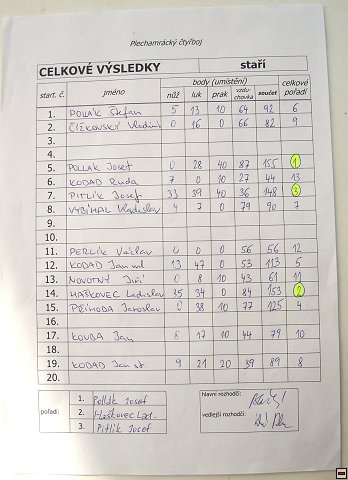 Plechamrácký čtyřboj
CELKOVÉ VÝSLEDKY staří
start. č. jméno body (umístění) celkové pořadí
nůž luk prak vzduchovka součet
1. POLLÁK Štefan 5 13 10 64 92 6
2. ČÍŽKOVSKÝ 0 16 0 66 82 9
3.
4.
5. POLLÁK Josef 0 28 40 87 155 1
6. KODAD Ruda 7 0 10 27 44 13
7. PITLÍK Josef 33 39 40 36 148 3
8. VYBÍHAL Vladislav 4 7 0 79 90 7
9.
10.
11. PERLÍK Václav 0 0 0 56 56 12
12. KODAD Jan ml. 13 47 0 53 113 5
13. NOVOTNÝ Jiří 0 8 10 43 61 11
14. HAŠKOVEC Ladislav 35 34 0 84 153 2
15. PŘÍHODA Jaroslav 0 38 10 77 125 4
16.
17. KOUBA Jan 8 17 10 44 79 10
18.
19. KODAD Jan st. 9 21 20 39 89 8
20.
pořadí:
1. Pollák Josef
2. Haškovec Lad.
3. Pitlík Josef
hlavní rozhodčí:
vedlejší rozhodčí: